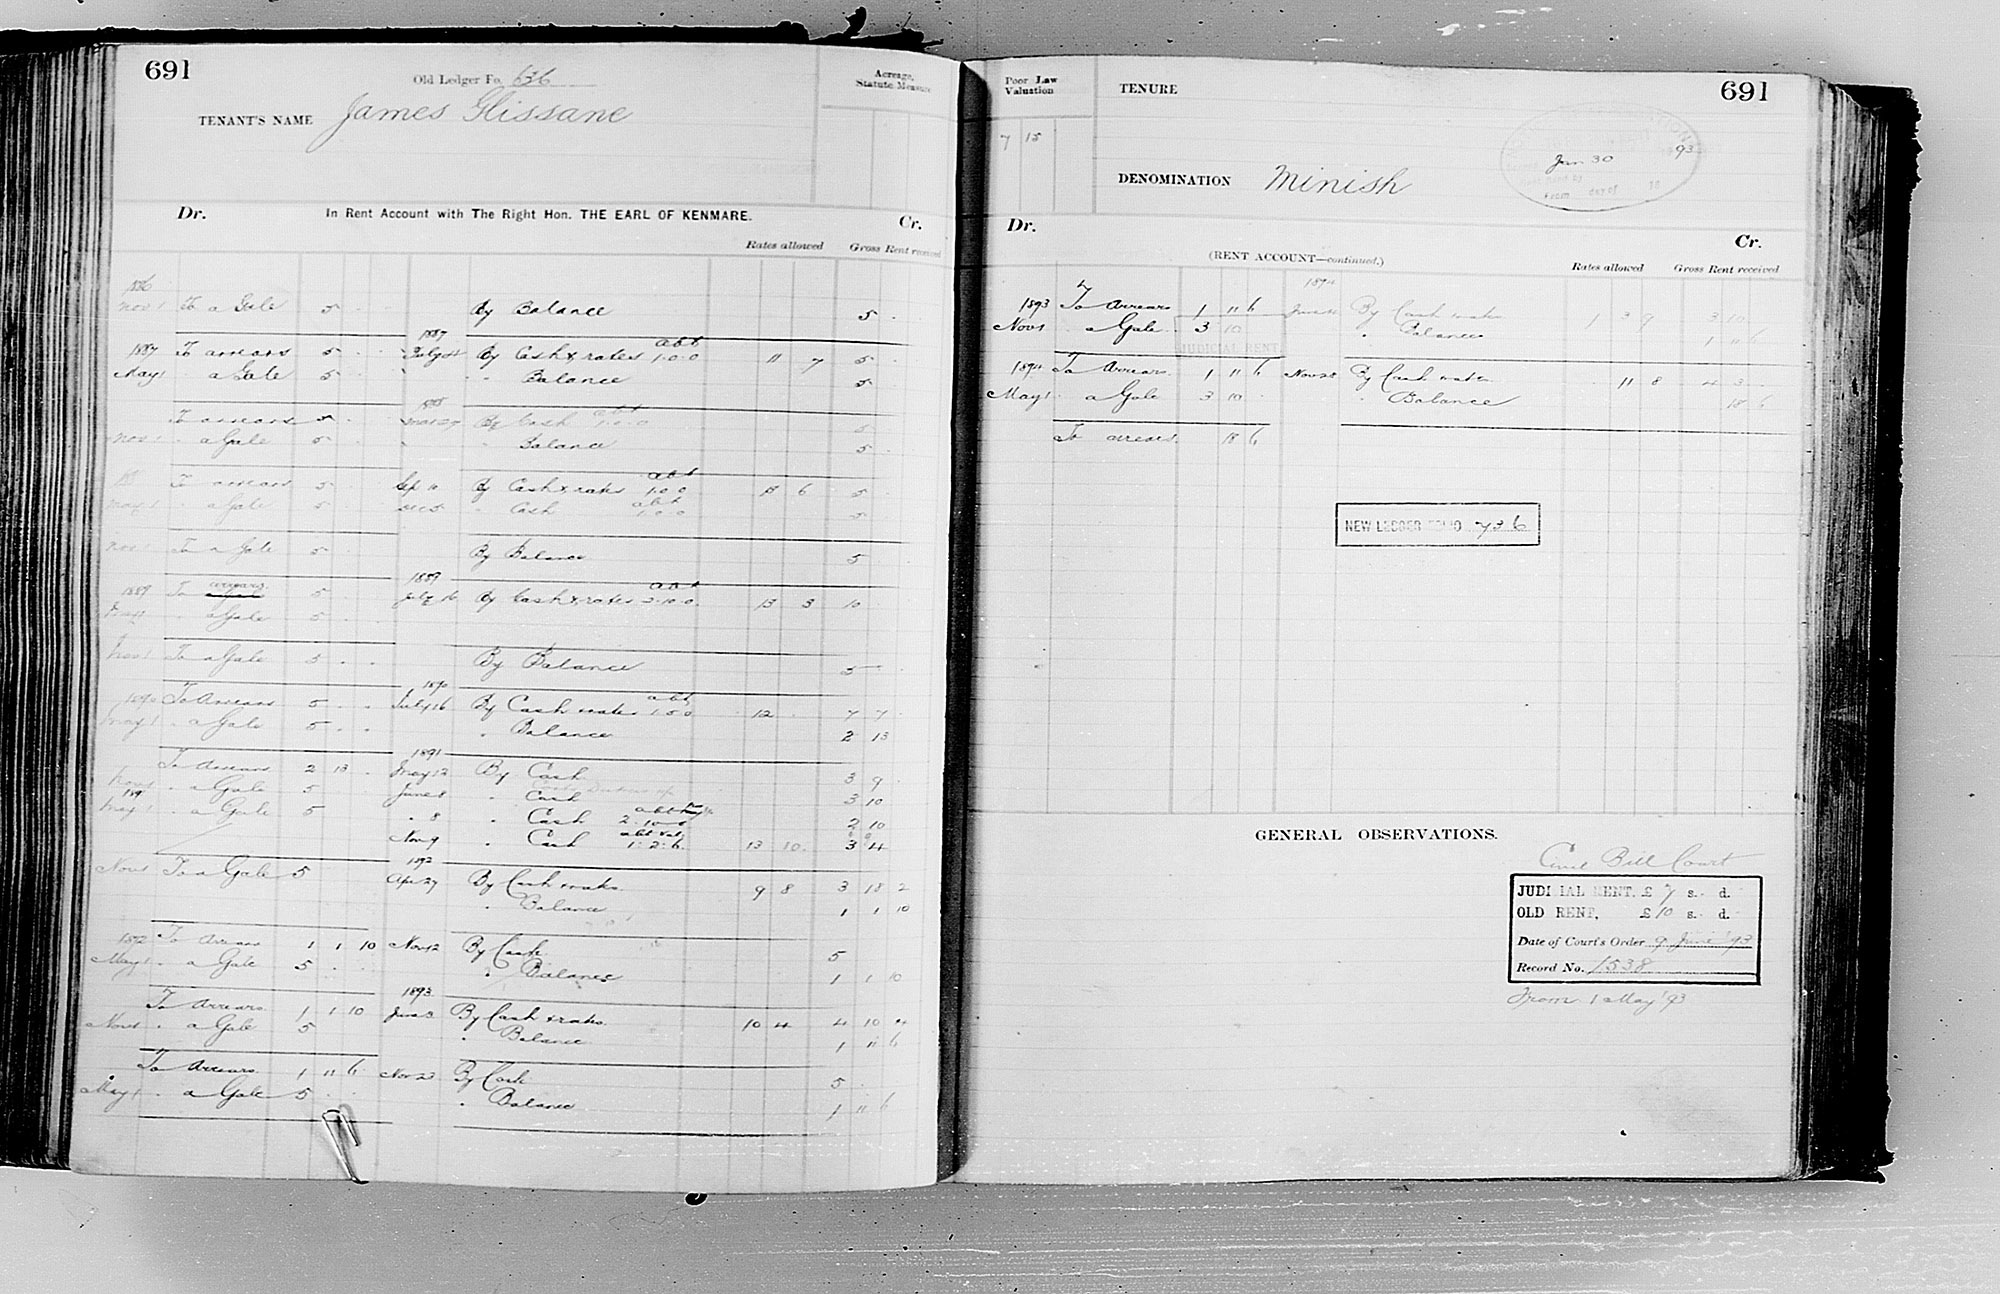 691
Old Ledger Fo. 636
Acreage, Statute Measure
TENANT'S NAME James Glissane
Dr. In Rent Account with The Right Hon. THE EARL OF KENMARE. Cr.
Rates allowed Gross Rent received
1886
Nov 1 To a Gale 5 . . By Balance 5 .
1887
1887 To arrears 5 . . July By Cash & rates abt 1.0.0 11 7 5 .
May 1 " a Gale 5 . . " " Balance 5
1888
To arrears 5 . By Cash abt 1.0.0 5
Nov 1 " a Gale 5 . " Balance 5 .
88 To arrears 5 . Sep 10 By Cash & rates abt 1.0.0 15 6 5 .
May 1 " a Gale 5 . Dec 5 " Cash abt 1.0.0 5
Nov 1 To a Gale 5 . By Balance 5
1889
1889 To arrears 5 . July 16 By Cash & rates abt 2.10.0 13 3 10
May 1 " a Gale 5 .
Nov 1 To a Gale 5 . . By Balance 5
1890
1890 To Arrears 5 . . July 16 By Cash & rates abt 1.5.0 12 . 7 7 .
May 1 " a Gale 5 . . " Balance 2 13
1891
To Arrears 2 13 . May 12 By Cash 3 9 .
Nov 1 " a Gale 5 . June 8 " Cash 3 10
1891
May 1 " a Gale 5 " 8 " Cash abt 2.10.0 2 10
Nov 9 " Cash abt 1.2.6 13 10 3 4
1892
Nov 1 To a Gale 5 Apr 27 By Cash & rates 9 8 3 18 2
" Balance 1 1 10
1892 To Arrears 1 1 10 Nov 12 By Cash 5
May 1 " a Gale 5 . " Balance 1 1 10
1893
To Arrears 1 1 10 June 3 By Cash & rates 10 4 4 10 4
Nov 1 " a Gale 5 " Balance 1 11 6
To Arrears 1 11 6 Nov 23 By Cash 5 .
May 1 " a Gale 5 . . " Balance 1 11 6
Poor Law Valuation
TENURE
691
7 15
Jan 30 93
day of
DENOMINATION Minish
Dr. Cr.
(RENT ACCOUNT—continued.)
Rates allowed Gross Rent received
1894
1893 To Arrears 1 11 6 June By Cash & rates 1 3 9 3 10
Nov 1 " a Gale 3 10 " Balance 1 11 6
JUDICIAL RENT
1894 To Arrears 1 11 6 Nov 28 By Cash & rates 11 8 4 3
May 1 " a Gale 3 10 " Balance 18 6
To arrears 18 6
NEW LEDGER FOLIO 736
GENERAL OBSERVATIONS.
Civil Bill Court
JUDICIAL RENT, £ 7 s. d.
OLD RENT, £ 10 s. d.
Date of Court's Order 9 June '93
Record No. 1538
From 1 May '93